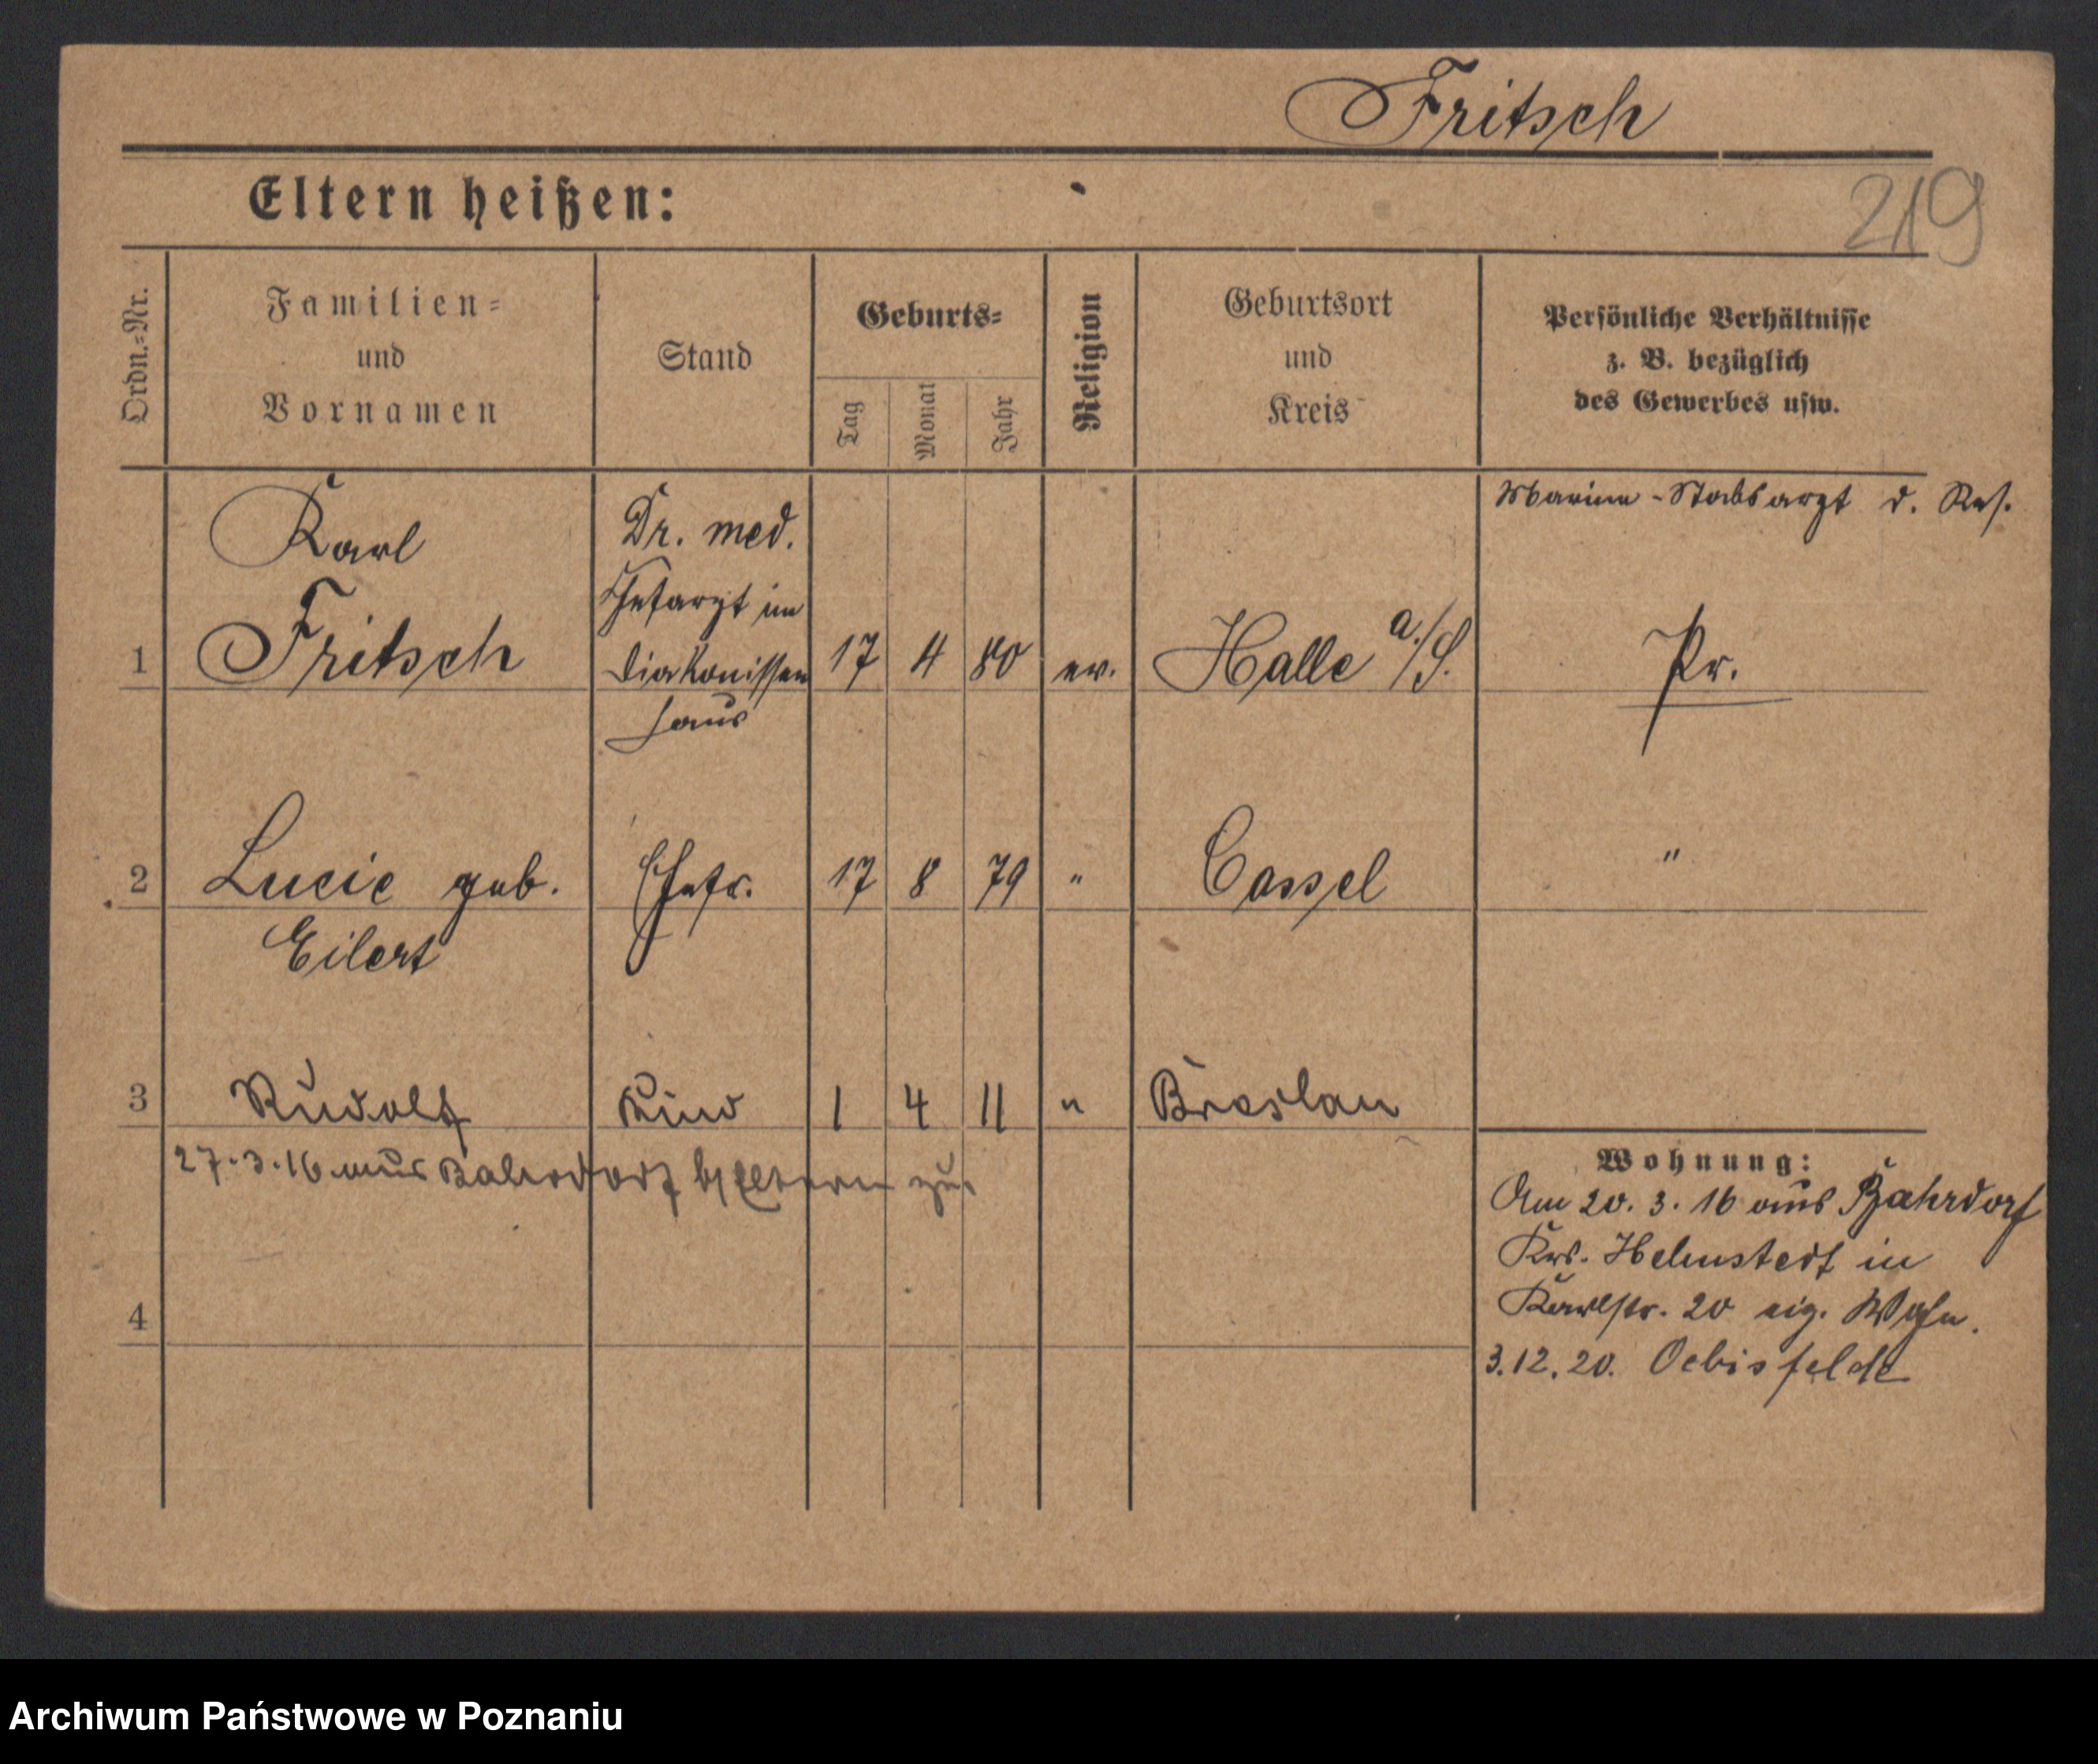 Fritsch
Eltern heißen:
219
Ordn.=Nr.
Familien=
und
Vornamen
Stand
Geburts=
Tag
Monat
Jahr
Religion
Geburtsort
und
Kreis
Persönliche Verhältnisse
z. B. bezüglich
des Gewerbes usw.
Marine-Stabsarzt d. Res.
Karl
Dr. med.
Chefarzt im
1 Fritsch Diakonissen 17 4 80 ev. Halle a./S. Pr.
haus
2 Lucie geb. Ehefr. 17 8 79 " Cassel "
Eilert
3 Rudolf Kind 1 4 11 " Breslau
27.3.16 aus Bahrdorf Eltern zu
Wohnung:
Am 20.3.16 aus Bahrdorf
Krs. Helmstedt in
4 Karlstr. 20 eig. Wohn.
3.12.20. Oebisfelde
Archiwum Państwowe w Poznaniu